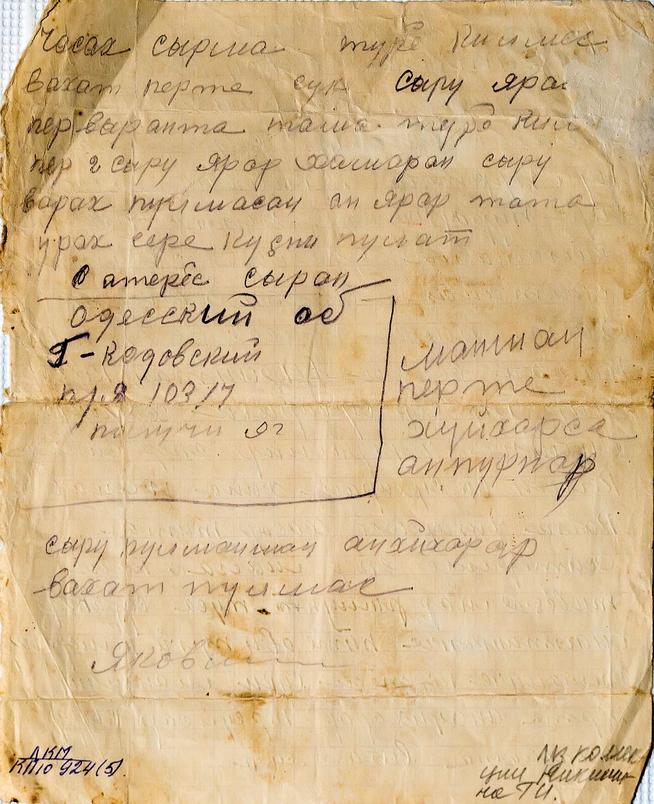 часах сырма турё килмес
вахат перте сук сару яра
пер выранта тама турё кил
пер 2 сыру ярар халмаран сыру
варах пулмасан ан ярар тата
урах сере кудни пулат
атерес сыран
Одесский об
кодовский
п/я 103/7
почти яг
маннан
перте
хуйхарса
анпурнар
сыру пулманшан анхйхарар
вахат пулмас
Яковл
ЛКМ
КП10 924(5).
Из коллек
ции Никити
на Т.И.